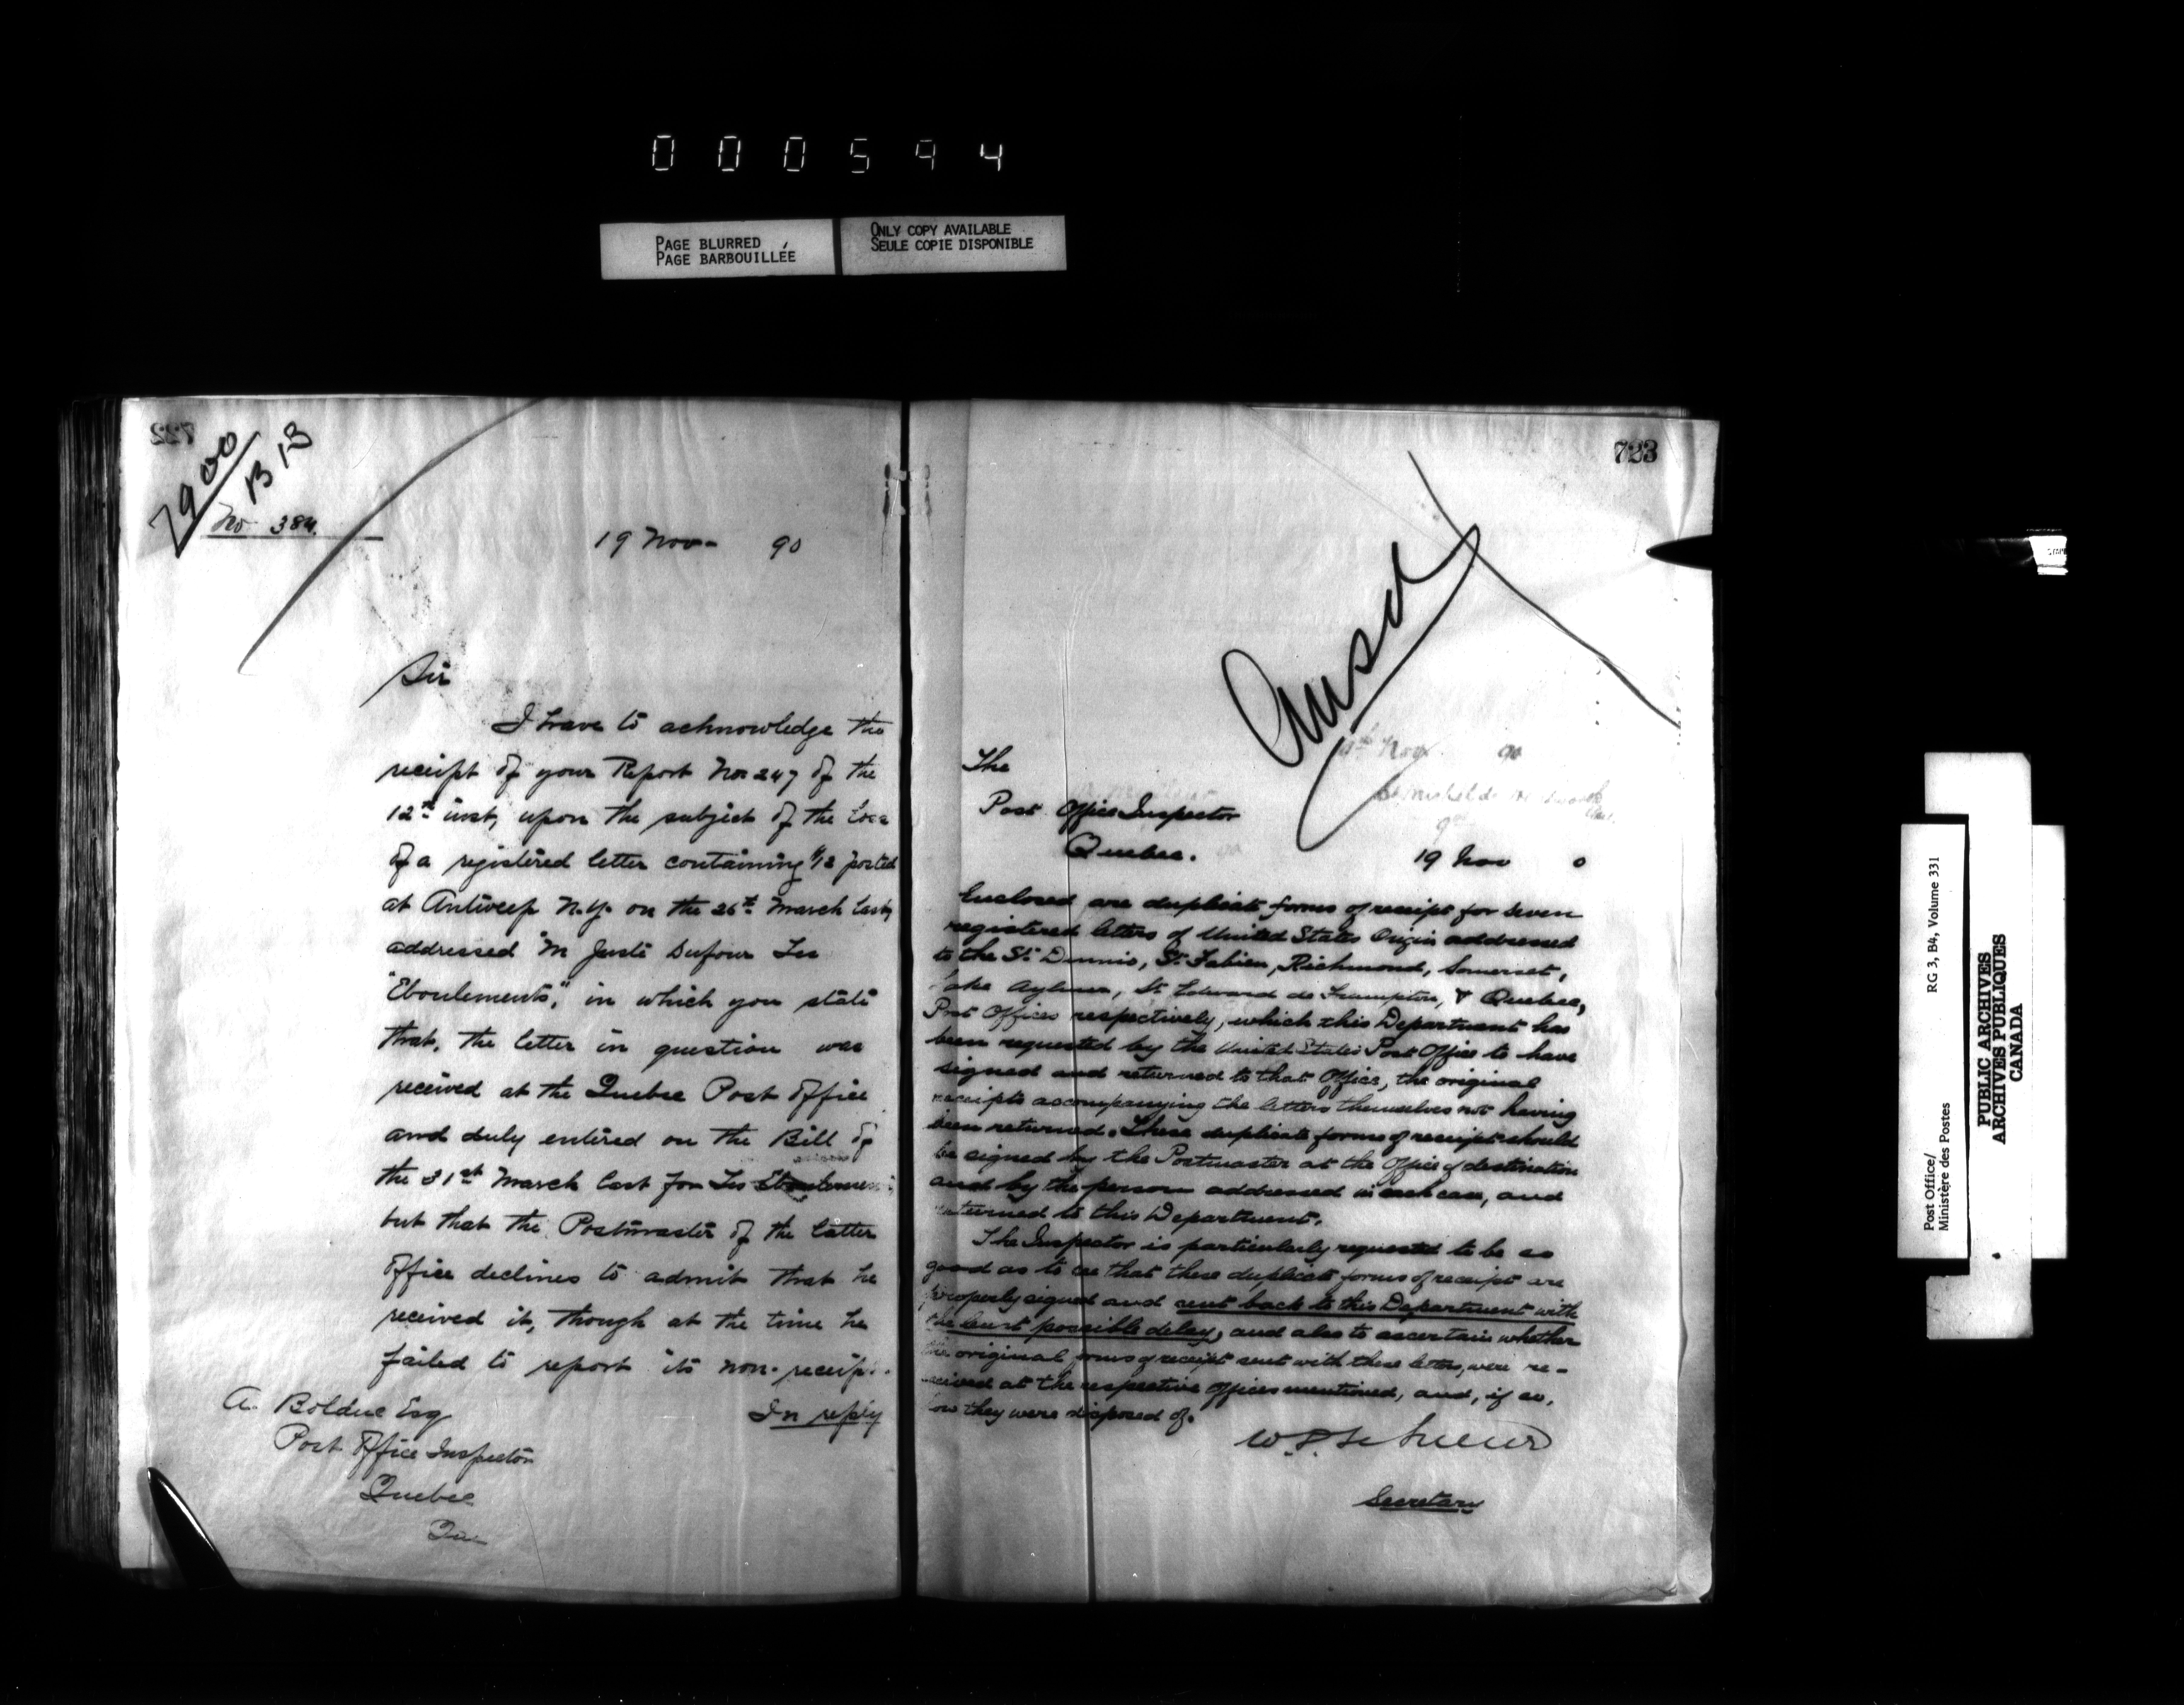 000594
PAGE BLURRED
PAGE BARBOUILLÉE
ONLY COPY AVAILABLE
SEULE COPIE DISPONIBLE
722
7900
B 13
No 384.
19 Nov- 90
Sir
I have to acknowledge the
receipt of your Report No 247 of the
12th inst, upon the subject of the loss
of a registered letter containing $12 posted
at Antwerp N.Y. on the 26th March last,
addressed "M Juste Dufour Les
"Eboulements," in which you state
that, the letter in question was
received at the Quebec Post Office
and duly entered on the Bill of
the 31st March last for Les Eboulements
but that the Postmaster of the latter
Office declines to admit that he
received it, though at the time he
failed to report its non-receipt.
In reply
A. Bolduc Esq
Post Office Inspector
Quebec
Que
723
Ansd
19th Nov 90
The
Post Office Inspector
Quebec.
19 Nov 0
Enclosed are duplicate forms of receipt for seven
registered letters of United States Origin addressed
to the St. Dennis, St. Fabien, Richmond, Somerset,
Lake Aylmer, St Edward de Frampton, & Quebec,
Post Offices respectively, which this Department has
been requested by the United States Post Office to have
signed and returned to that Office, the original
receipts accompanying the letters themselves not having
been returned. These duplicate forms of receipt should
be signed by the Postmaster at the Office of destination
and by the person addressed in each case, and
returned to this Department.
The Inspector is particularly requested to be so
good as to see that these duplicate forms of receipt are
properly signed and sent back to this Department with
the least possible delay, and also to ascertain whether
the original forms of receipt sent with these letters, were re-
ceived at the respective Offices mentioned, and, if so,
how they were disposed of.
Secretary
Post Office/
Ministère des Postes
RG 3, B4, Volume 331
PUBLIC ARCHIVES
ARCHIVES PUBLIQUES
CANADA